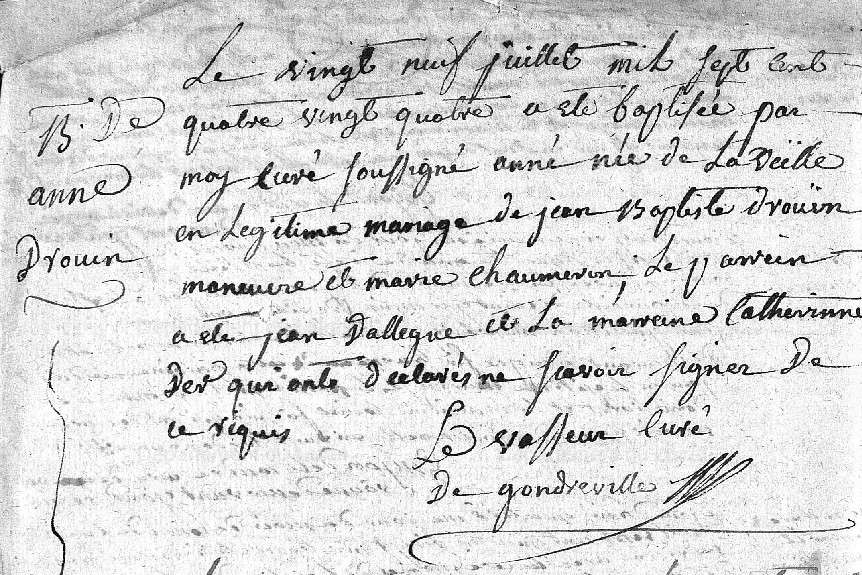 Le vingt neuf juillet mil sept cent
B. De
quatre vingt quatre a eté baptisée par
anne
moy curé soussigné anne née de La veille
Drouin
en Legitime mariage de jean Baptiste drouin
maneuvre et marie chaumeron, Le parrein
a eté jean Dallegue et La marreine Catherinne
Der qui onte declarés ne scavoir signer De
ce riquis
Le vasseur Curé
De gondreville